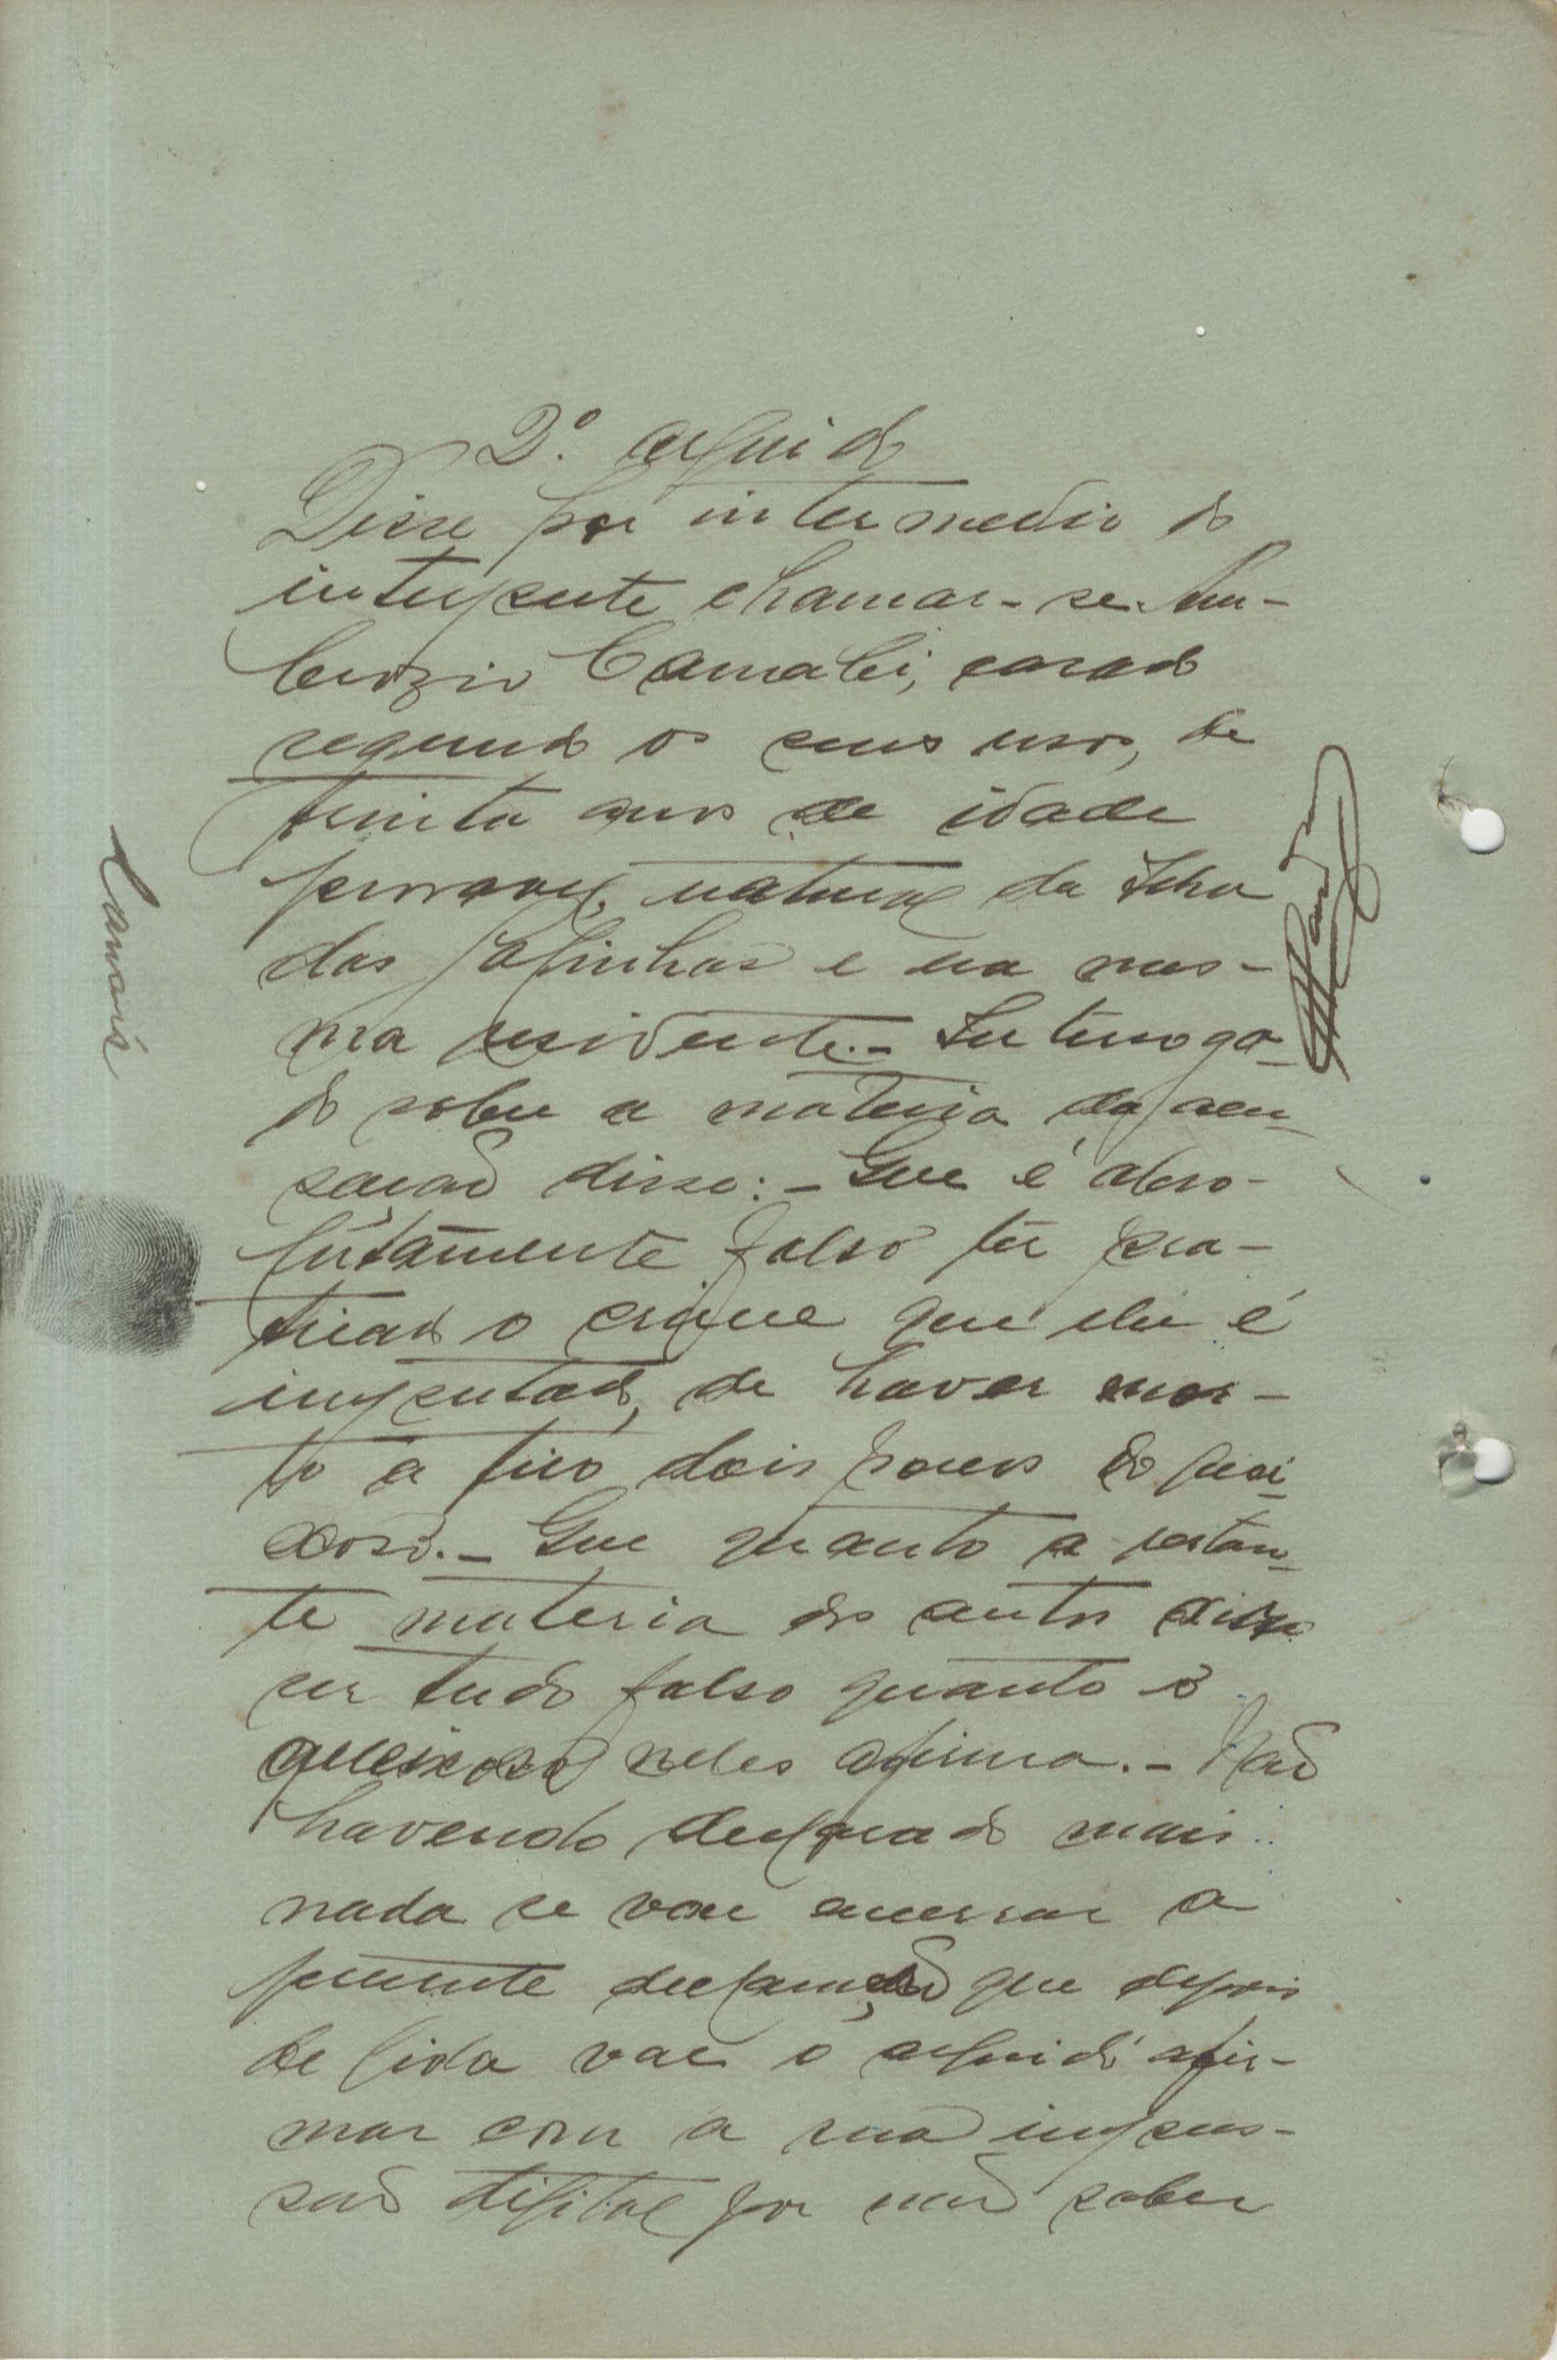 2º. arguido
Disse por intermedio do
interprete chamar-se Am-
brozio Camabi, casado
segundo os seus usos, de
trinta anos de idade
provavel, natural da Ilha
das Galinhas e na mes-
ma residente.- Interroga-
do sobre a materia da acu-
sação disse:- Que é abso-
lutamente falso ter pra-
ticado o crime que lhe é
imputado, de haver mor-
to a tiro dois porcos do quei-
xoso.- Que quanto a restan-
te materia dos autos disse
ser tudo falso quanto o
queixoso neles afirma.- Não
havendo declarado mais
nada se vae encerrar a
presente declaração que depois
de lida vae o arguido afir-
mar com a sua impres-
são digital por não saber